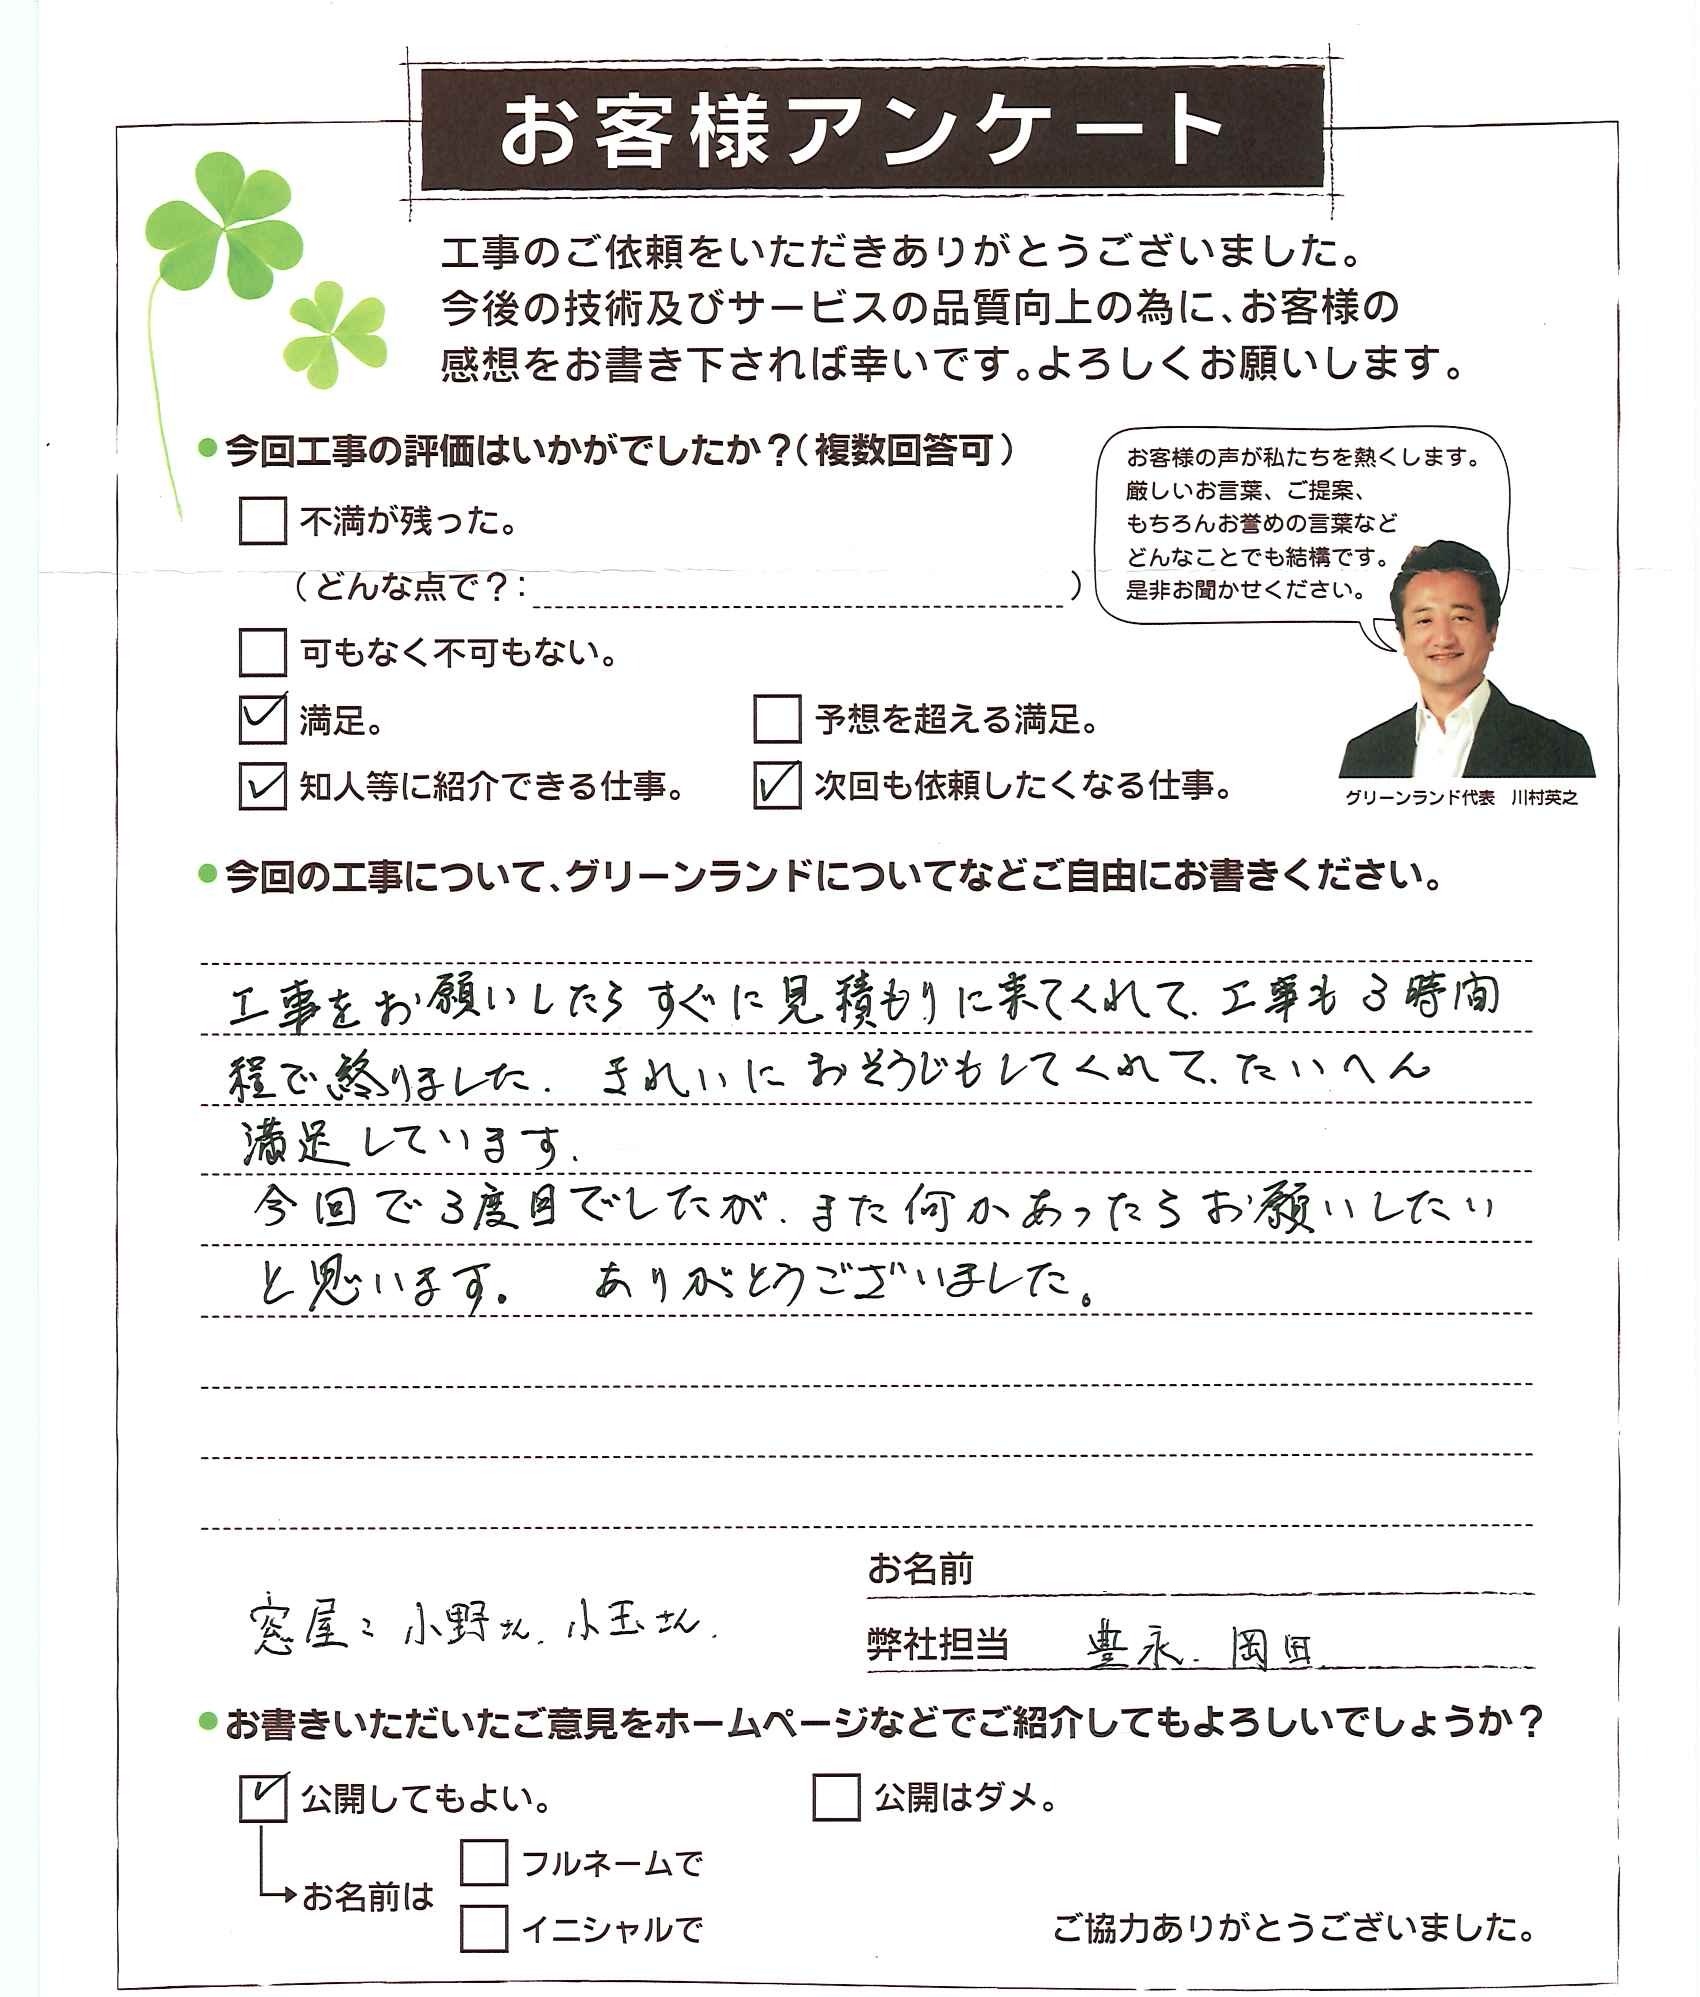 お客様アンケート
工事のご依頼をいただきありがとうございました。
今後の技術及びサービスの品質向上の為に、お客様の
感想をお書き下されば幸いです。よろしくお願いします。
●今回工事の評価はいかがでしたか？（複数回答可）
不満が残った。
（どんな点で？：　）
可もなく不可もない。
満足。
予想を超える満足。
知人等に紹介できる仕事。
次回も依頼したくなる仕事。
お客様の声が私たちを熱くします。
厳しいお言葉、ご提案、
もちろんお誉めの言葉など
どんなことでも結構です。
是非お聞かせください。
グリーンランド代表　川村英之
●今回の工事について、グリーンランドについてなどご自由にお書きください。
工事をお願いしたらすぐに見積もりに来てくれて、工事も3時間
程で終りました. きれいにおそうじもしてくれて、たいへん
満足しています.
今回で3度目でしたが、また何かあったらお願いしたい
と思います。 ありがとうございました。
お名前
窓屋: 小野さん、小玉さん.
弊社担当 豊永、岡田
●お書きいただいたご意見をホームページなどでご紹介してもよろしいでしょうか？
公開してもよい。
公開はダメ。
お名前は
フルネームで
イニシャルで
ご協力ありがとうございました。